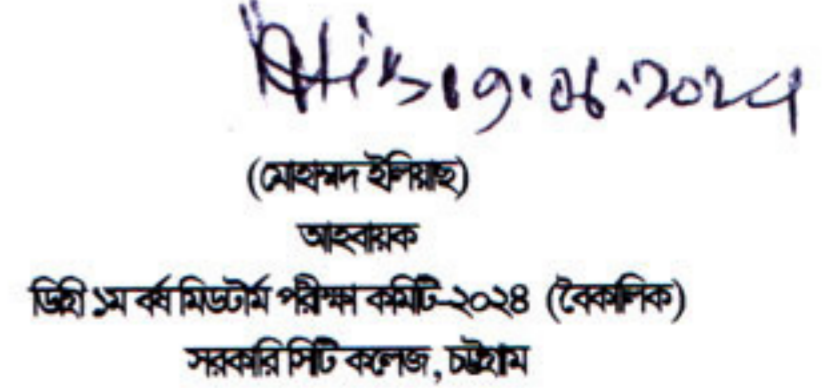 19.06.2024
(মোহাম্মদ ইলিয়াছ)
আহবায়ক
ডিগ্রী ১ম বর্ষ মিডটার্ম পরীক্ষা কমিটি-২০২৪ (বৈকালিক)
সরকারি সিটি কলেজ, চট্টগ্রাম